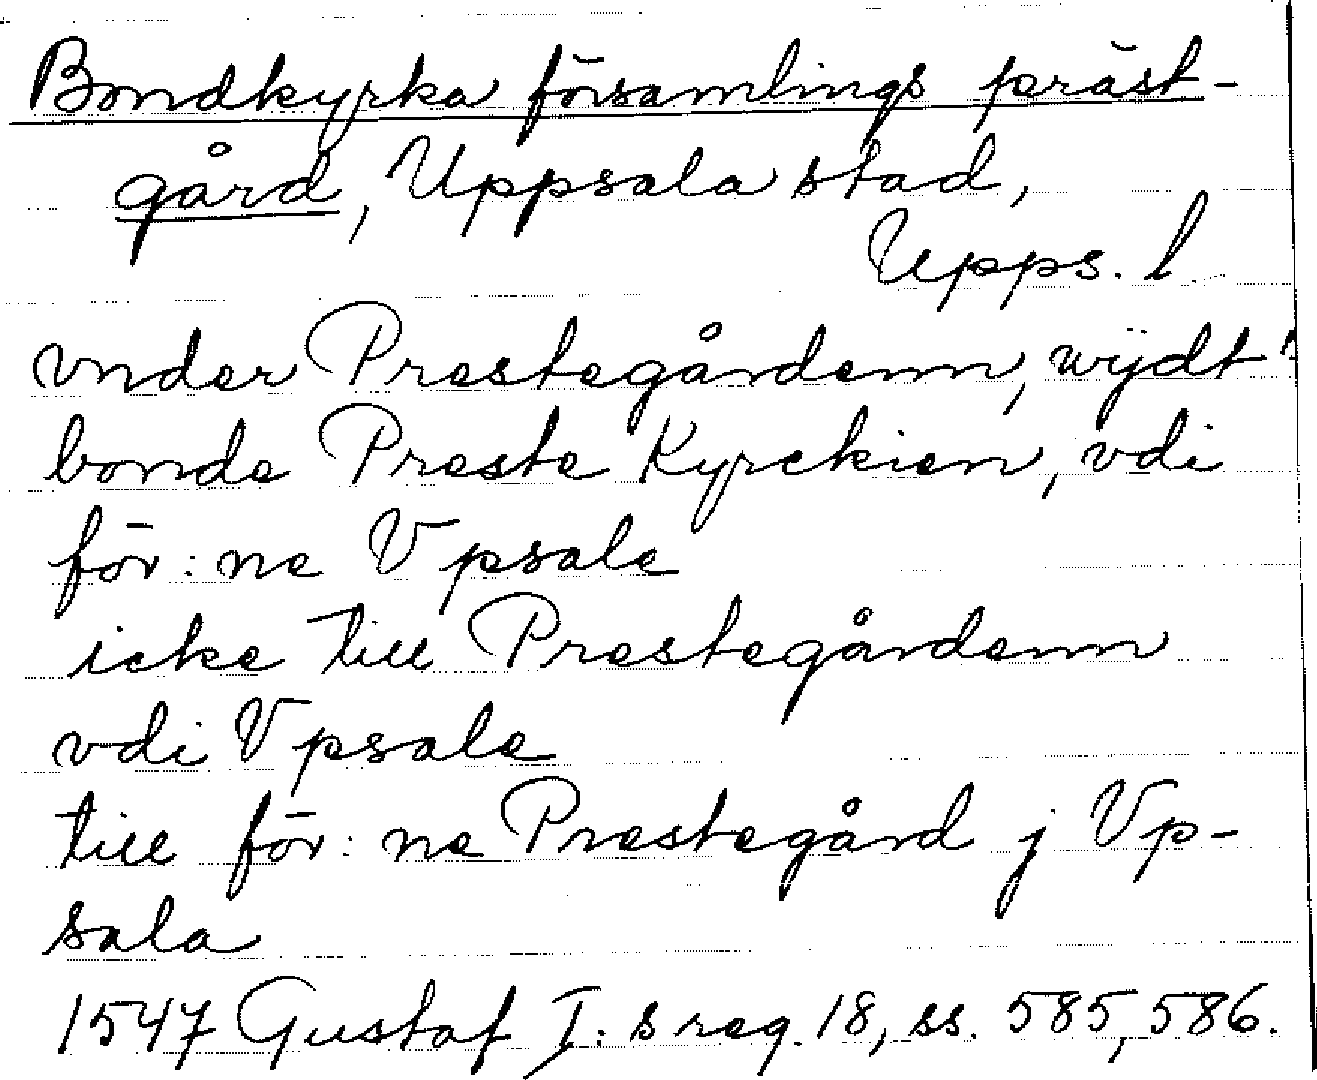 Bondkyrka församlings präst-
gård, Uppsala stad,
Upps. l
vnder Prestegårdenn, wÿdt
bonde Preste Kyrckien, vdi
för:ne Vpsale
icke till Prestegårdenn
vdi Vpsale
till för:ne Prestegård j Vp-
sala
1547 Gustaf I:s reg. 18, ss. 585, 586.